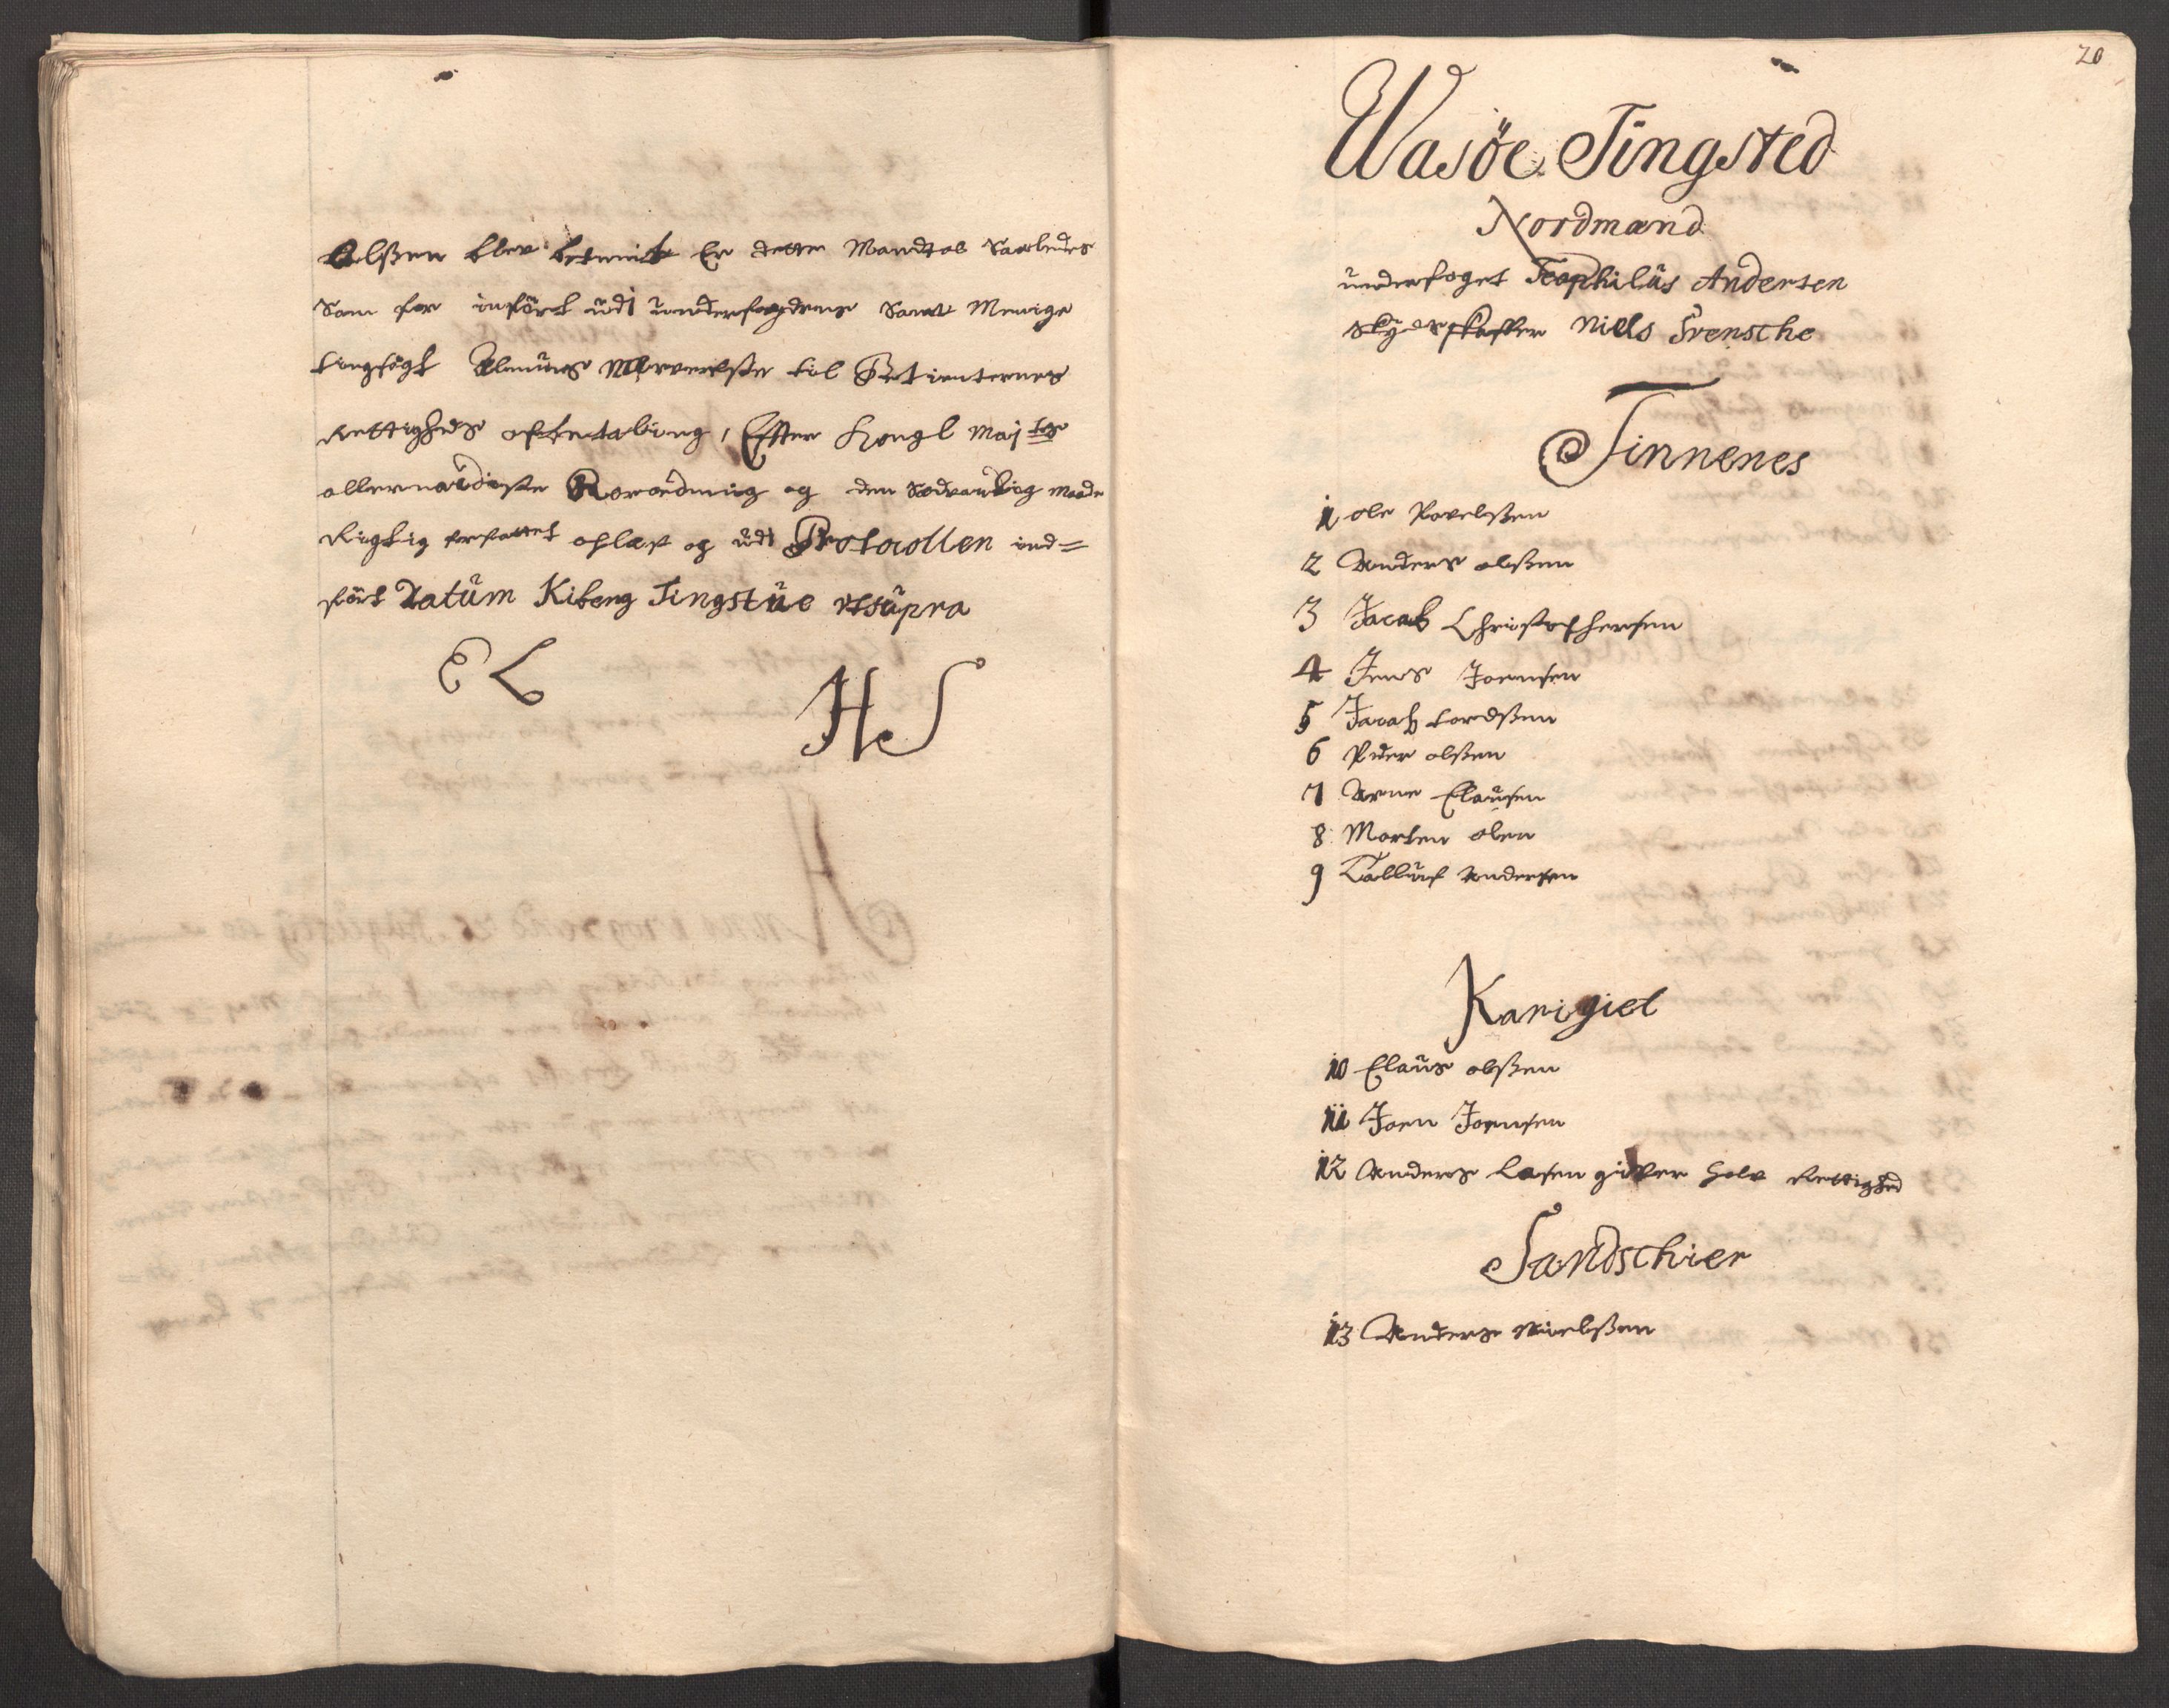 Olßen blev betimt Er dette Mandtal Saaledes
Som for inført udi underfogdens Samt Menige
tingsøgt Almues til Betienternes
Rettigheds aftetaling, Effter Kongl Maj ts
allernaadigste Forordning og den Sædvanlig maade
Rigtig forfattet oplæst og udi Protocollen ind=
ført Datum Kiberg Tingstue utsupra
E L
H S
20
Wasöe Tingsted
Nordmænd
underfoget Teophilus Andersen
skydsskaffer Niels Svensche
Finnenes
1 ole Povelßen
2 Anders olßen
3 Jacob Christophersen
4 Jens Joensen
5 Jacob tordßen
6 Peder olßen
7 Arne Clausen
8 Morten olsen
9 Tolluf Andersen
Karigiel
10 Claus olßen
11 Joen Joensen
12 Anders Lasen gifver halv Rettighed
Sandschier
13 Anders Nielßen